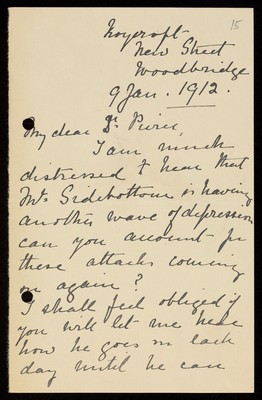 15
Noycroft
New Street
Woodbridge
9 Jan. 1912.
My dear Dr. Pierce,
I am much
distressed to hear that
Mr. Sidebottom is having
another wave of depression
can you account for
these attacks coming
on again?
I shall feel obliged if
you will let me hear
how he goes on each
day until he can